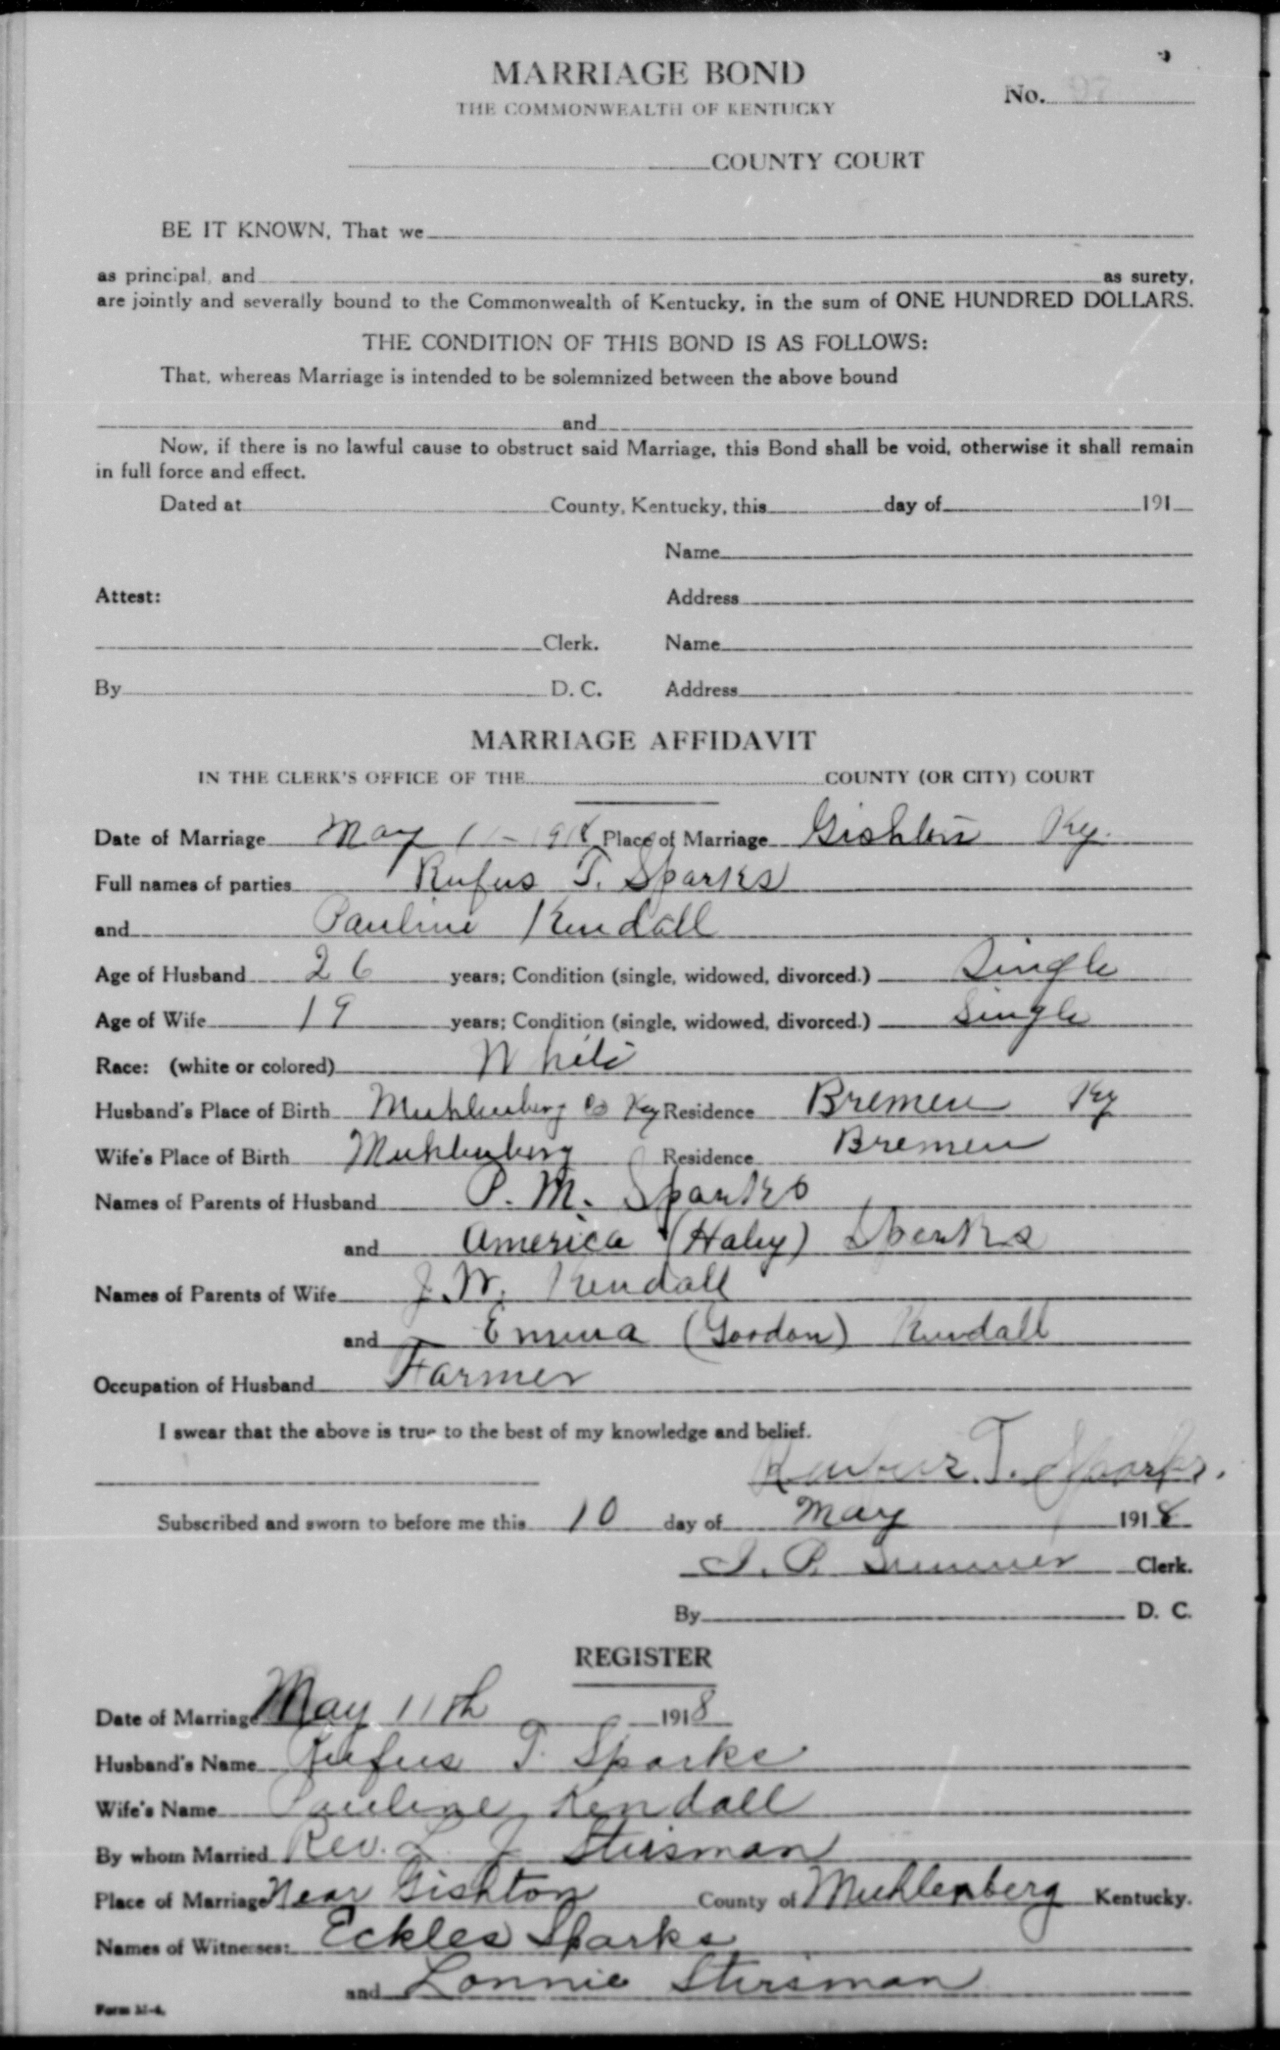 MARRIAGE BOND
No. 97
THE COMMONWEALTH OF KENTUCKY
COUNTY COURT
BE IT KNOWN, That we
as principal, and as surety,
are jointly and severally bound to the Commonwealth of Kentucky, in the sum of ONE HUNDRED DOLLARS.
THE CONDITION OF THIS BOND IS AS FOLLOWS:
That, whereas Marriage is intended to be solemnized between the above bound
and
Now, if there is no lawful cause to obstruct said Marriage, this Bond shall be void, otherwise it shall remain
in full force and effect.
Dated at County, Kentucky, this day of 191
Name
Attest: Address
Clerk. Name
By D. C. Address
MARRIAGE AFFIDAVIT
IN THE CLERK'S OFFICE OF THE COUNTY (OR CITY) COURT
Date of Marriage May 11 - 1918 Place of Marriage Gishton Ky.
Full names of parties Rufus T. Sparks
and Pauline Kendall
Age of Husband 26 years; Condition (single, widowed, divorced.) Single
Age of Wife 19 years; Condition (single, widowed, divorced.) Single
Race: (white or colored) White
Husband's Place of Birth Muhlenberg Co Ky Residence Bremen Ky
Wife's Place of Birth Muhlenberg Residence Bremen
Names of Parents of Husband P. M. Sparks
and America (Haley) Sparks
Names of Parents of Wife J. W. Kendall
and Emma (Gordon) Kendall
Occupation of Husband Farmer
I swear that the above is true to the best of my knowledge and belief.
Rufus T. Sparks.
Subscribed and sworn to before me this 10 day of May 1918
J. P. Summer Clerk.
By D. C.
REGISTER
Date of Marriage May 11th 1918
Husband's Name Rufus T. Sparks
Wife's Name Pauline Kendall
By whom Married Rev. L. J. Stirsman
Place of Marriage Near Gishton County of Muhlenberg Kentucky.
Names of Witnesses: Eckles Sparks
and Lonnie Stirsman
Form M-4.